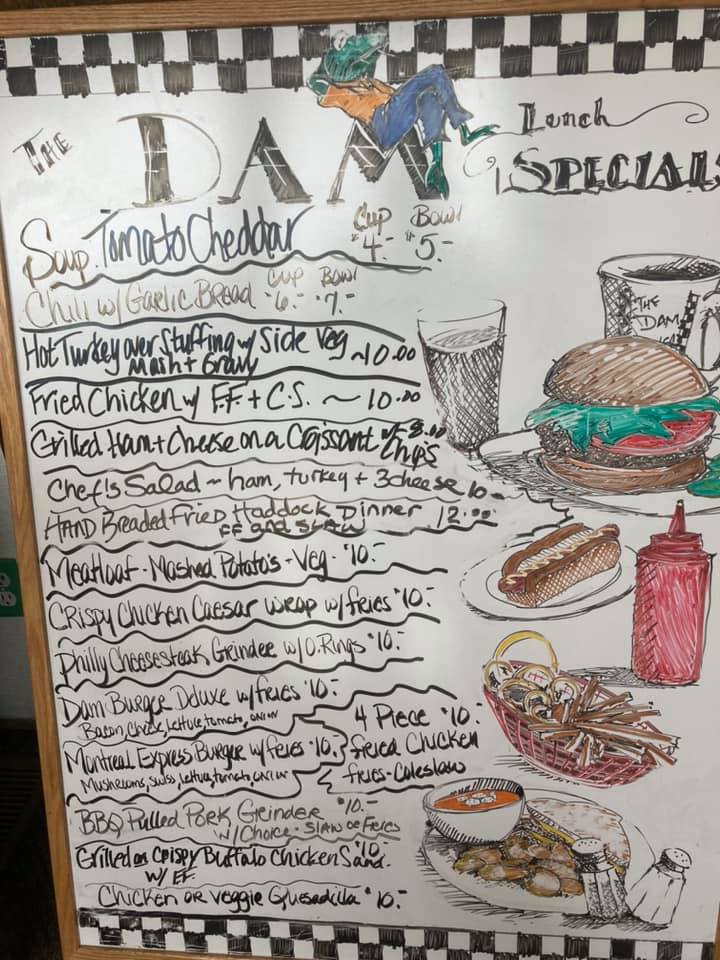 THE DAM Lunch
SPECIALS
Cup Bowl
Soup. Tomato Cheddar $4.- $5.-
Cup Bowl
Chili w/ Garlic Bread -6.- -7.-
Hot Turkey over Stuffing w/ Side Veg ~10.00
Mash + Gravy
Fried Chicken w/ F.F. + C.S. ~ 10.00
Grilled Ham + Cheese on a Croissant w/ 8.00
Chips
Chef's Salad ~ ham, turkey + 3cheese 10-
HAND Breaded Fried Haddock Dinner 12.00
FF and SLAW
Meatloaf - Mashed Potato's - Veg. $10.-
Crispy Chicken Caesar wrap w/ fries $10.-
Philly Cheesesteak Grinder w/ O. Rings $10.-
Dam Burger Deluxe w/ fries $10.-
Bacon, Cheese, lettuce, tomato, onion
Montreal Express Burger w/ fries $10.-
Mushrooms, swiss, lettuce, tomato, onion
4 Piece $10.-
fried Chicken
fries - Coleslaw
BBQ Pulled Pork Grinder $10.-
w/ Choice - Slaw or Fries
Grilled or Crispy Buffalo Chicken Sand. $10.-
w/ FF.
Chicken or Veggie Quesadilla $10.-
THE
DAM